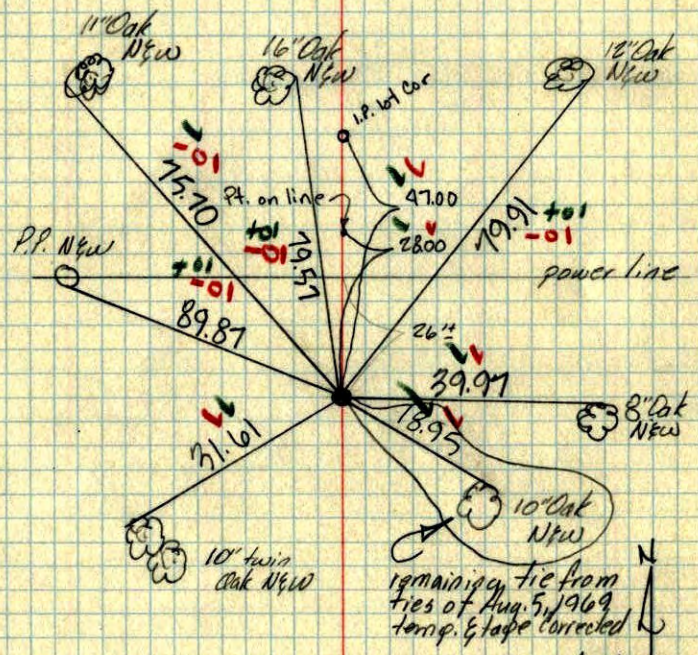 11" Oak
N&W
16" Oak
N&W
12" Oak
N&W
I.P. lot Cor
-01
75.70
Pt. on line
47.00
28.00
+01
-01
79.57
79.91
+01
-01
P.P. N&W
power line
+01
-01
89.87
26'±
39.97
8" Oak
N&W
78.95
31.61
10" Oak
N&W
10" twin
Oak N&W
N
remaining tie from
ties of Aug. 5, 1969
temp. & tape corrected